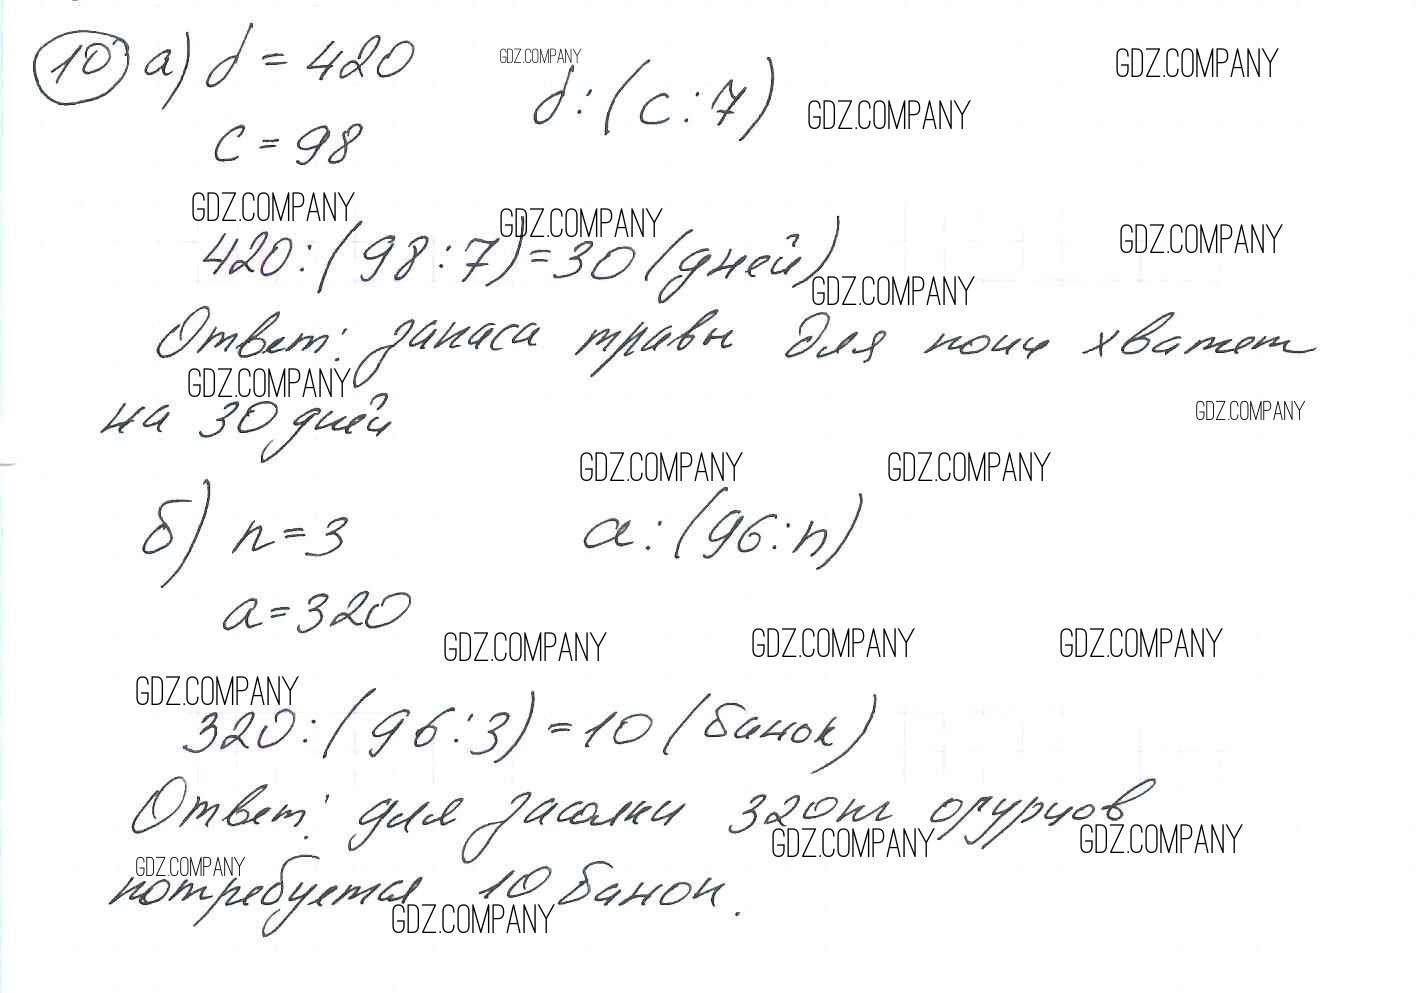 10 а) d = 420
GDZ.COMPANY
d : (c : 7)
GDZ.COMPANY
GDZ.COMPANY
c = 98
GDZ.COMPANY
GDZ.COMPANY
GDZ.COMPANY
420 : (98 : 7) = 30 (дней)
GDZ.COMPANY
Ответ: запаса травы для пони хватет
GDZ.COMPANY
на 30 дней
GDZ.COMPANY
GDZ.COMPANY
GDZ.COMPANY
б) n = 3
a : (96 : n)
a = 320
GDZ.COMPANY
GDZ.COMPANY
GDZ.COMPANY
GDZ.COMPANY
320 : (96 : 3) = 10 (банок)
Ответ: для засолки 320кг огурцов
GDZ.COMPANY
GDZ.COMPANY
GDZ.COMPANY
потребуется 10 банок.
GDZ.COMPANY